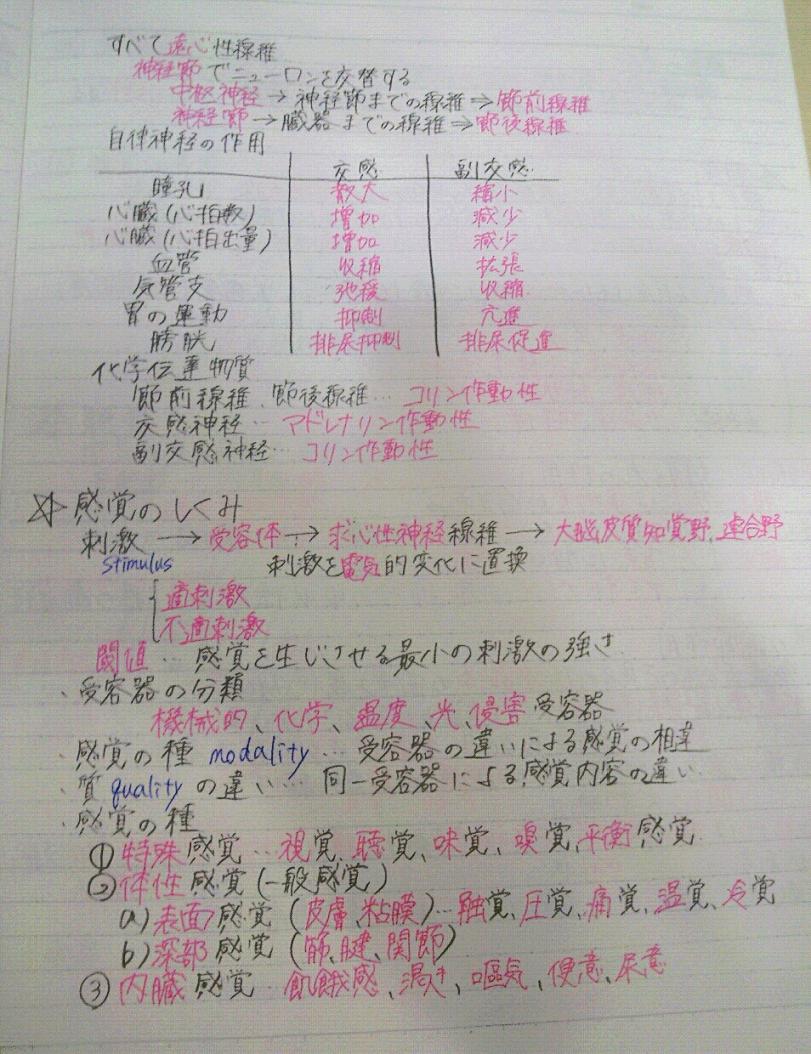 すべて遠心性線維
神経節でニューロンを交替する
中枢神経→神経節までの線維⇒節前線維
神経節→臓器までの線維⇒節後線維
自律神経の作用
交感 副交感
瞳孔 散大 縮小
心臓(心拍数) 増加 減少
心臓(心拍出量) 増加 減少
血管 収縮 拡張
気管支 弛緩 収縮
胃の運動 抑制 亢進
膀胱 排尿抑制 排尿促進
化学伝達物質
節前線維、節後線維… コリン作動性
交感神経… アドレナリン作動性
副交感神経… コリン作動性
☆感覚のしくみ
刺激 → 受容体 → 求心性神経線維 → 大脳皮質知覚野、連合野
stimulus 刺激を電気的変化に置換
適刺激
不適刺激
閾値… 感覚を生じさせる最小の刺激の強さ
・受容器の分類
機械的、化学、温度、光、侵害受容器
・感覚の種 modality… 受容器の違いによる感覚の相違
・質 quality の違い… 同一受容器による感覚内容の違い
・感覚の種
①特殊感覚…視覚、聴覚、味覚、嗅覚、平衡感覚
②体性感覚(一般感覚)
a)表面感覚(皮膚、粘膜)…触覚、圧覚、痛覚、温覚、冷覚
b)深部感覚(筋、腱、関節)
③内臓感覚…飢餓感、渇き、嘔気、便意、尿意